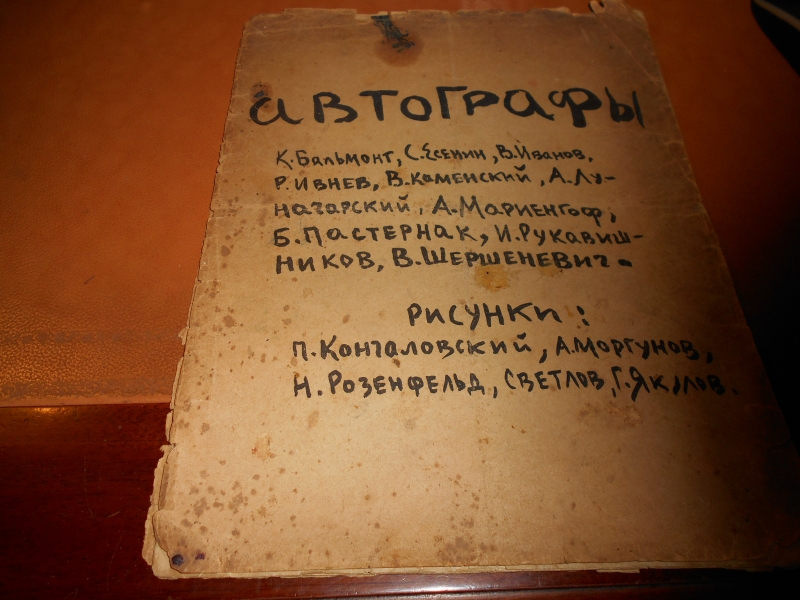 автографы
К. Бальмонт, С. Есенин, В. Иванов,
Р. Ивнев, В. Каменский, А. Лу-
начарский, А. Мариенгоф,
Б. Пастернак, И. Рукавиш-
ников, В. Шершеневич.
рисунки:
П. Кончаловский, А. Моргунов,
Н. Розенфельд, Светлов, Г. Якулов.